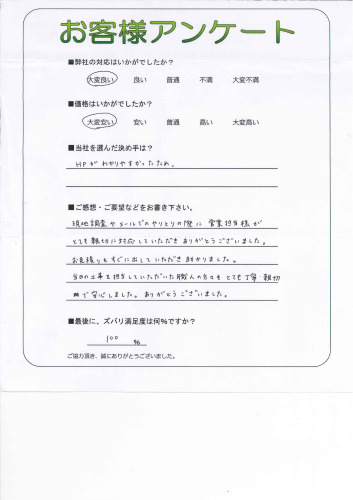 お客様アンケート
■弊社の対応はいかがでしたか？
大変良い 良い 普通 不満 大変不満
■価格はいかがでしたか？
大変安い 安い 普通 高い 大変高い
■当社を選んだ決め手は？
HPがわかりやすかったため。
■ご感想・ご要望などをお書き下さい。
現地調査やメールでのやりとりの際に営業担当様が
とても親切に対応していただきありがとうございました。
お見積りもすぐに出していただき助かりました。
当日の工事を担当していただいた職人の方々もとても丁寧・親切
で安心しました。ありがとうございました。
■最後に、ズバリ満足度は何%ですか？
100 %
ご協力頂き、誠にありがとうございました。